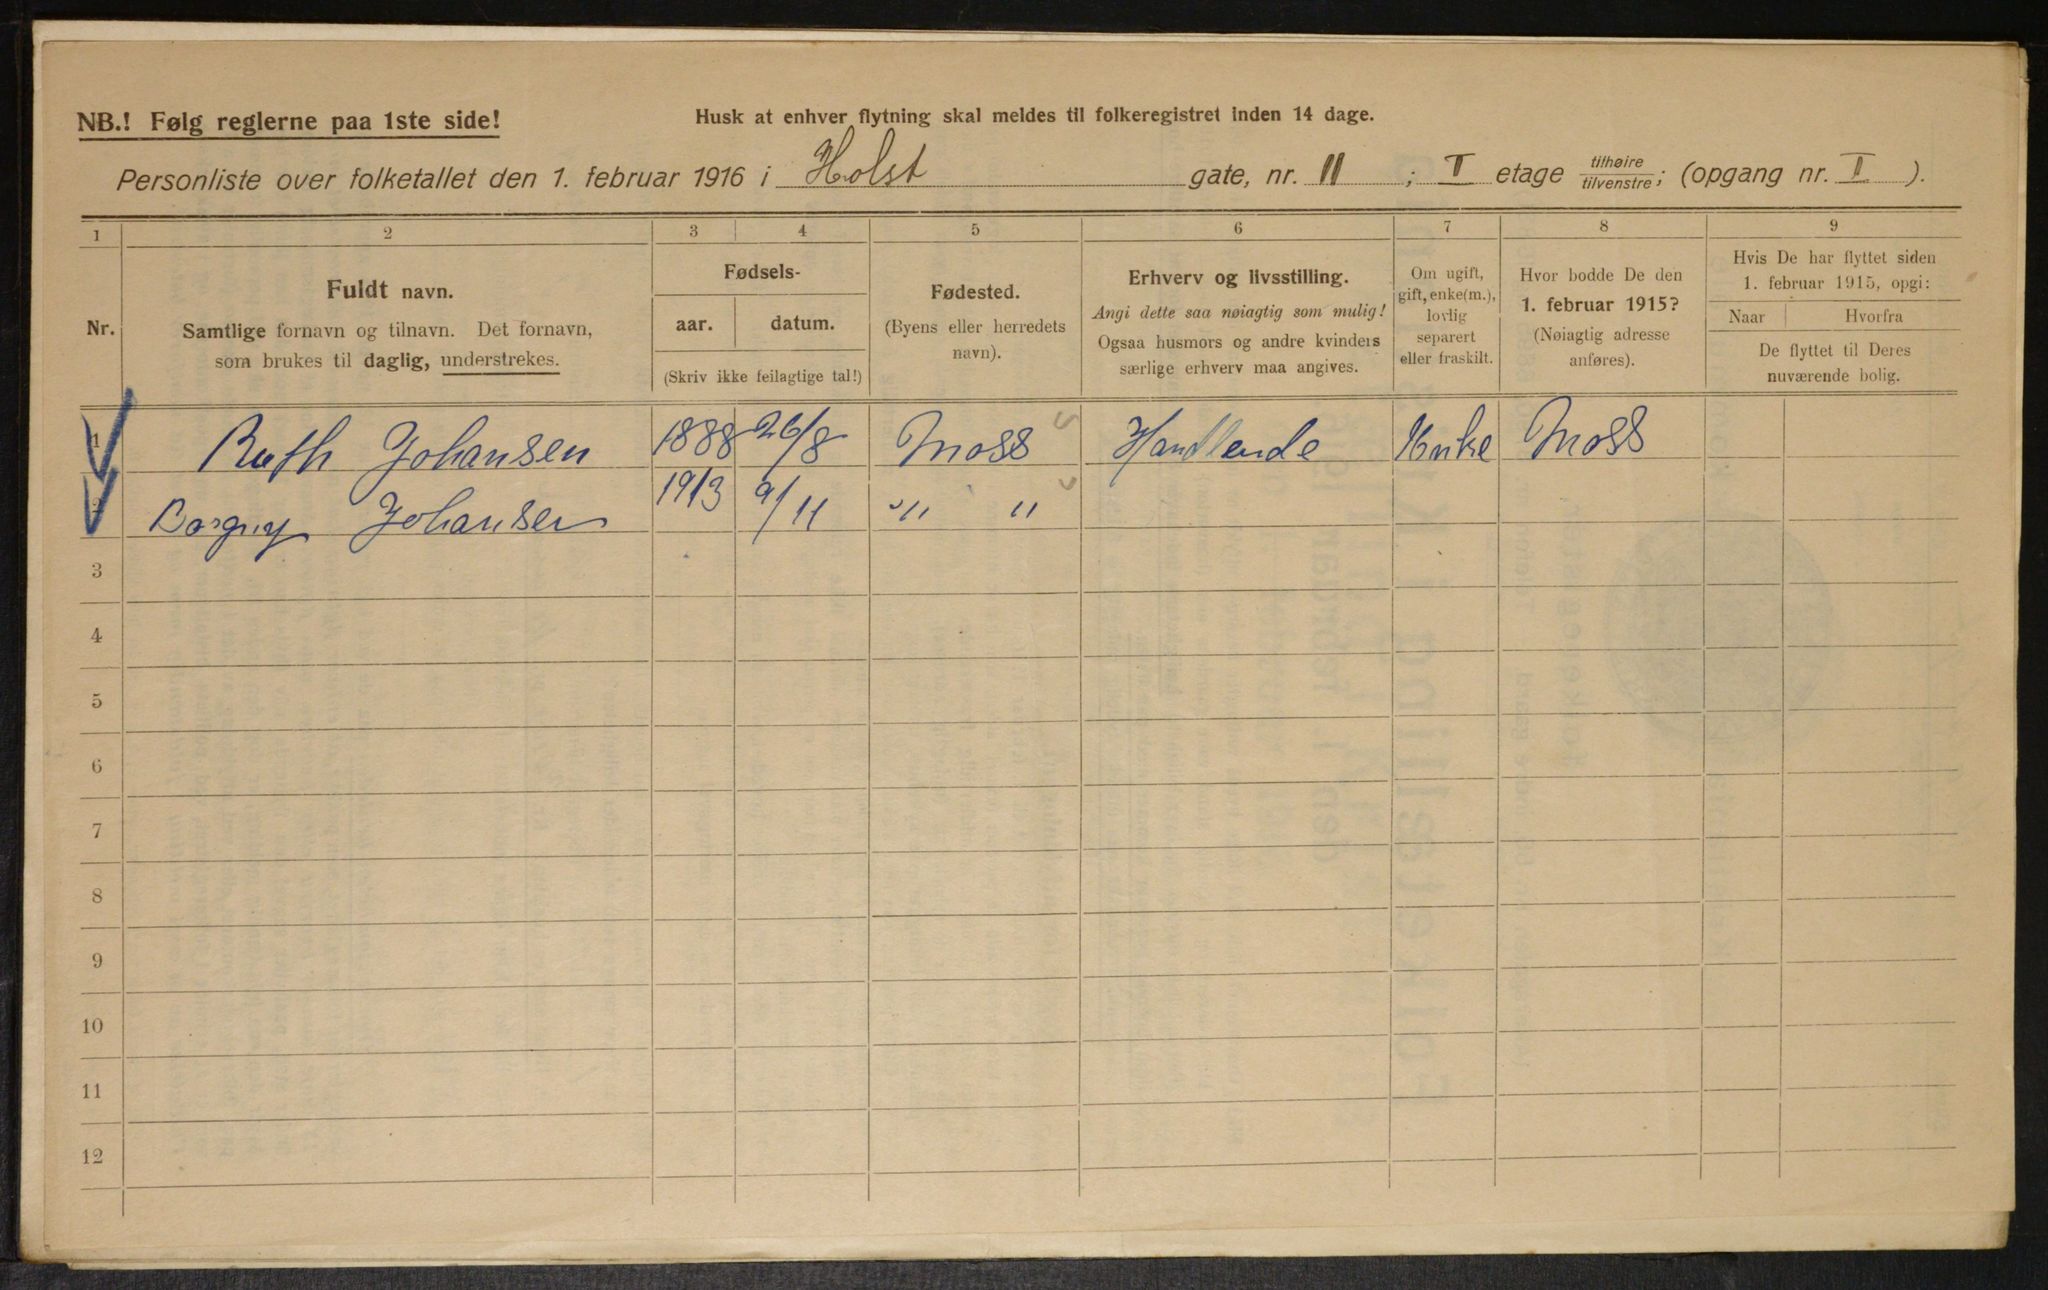 NB.! Følg reglerne paa 1ste side!
Husk at enhver flytning skal meldes til folkeregistret inden 14 dage.
Personliste over folketallet den 1. februar 1916 i Holst gate, nr. 11 ; I etage tilhøire/tilvenstre; (opgang nr. I ).
1 2 3 4 5 6 7 8 9
Nr.
Fuldt navn.
Samtlige fornavn og tilnavn. Det fornavn,
som brukes til daglig, understrekes.
Fødsels-
aar. datum.
(Skriv ikke feilagtige tal!)
Fødested.
(Byens eller herredets
navn).
Erhverv og livsstilling.
Angi dette saa nøiagtig som mulig!
Ogsaa husmors og andre kvinders
særlige erhverv maa angives.
Om ugift,
gift, enke(m.),
lovlig
separert
eller fraskilt.
Hvor bodde De den
1. februar 1915?
(Nøiagtig adresse
anføres).
Hvis De har flyttet siden
1. februar 1915, opgi:
Naar Hvorfra
De flyttet til Deres
nuværende bolig.
1 Ruth Johansen 1888 26/8 Moss Handlende Enke Moss
2 Borgny Johansen 1913 9/11 " "
3
4
5
6
7
8
9
10
11
12